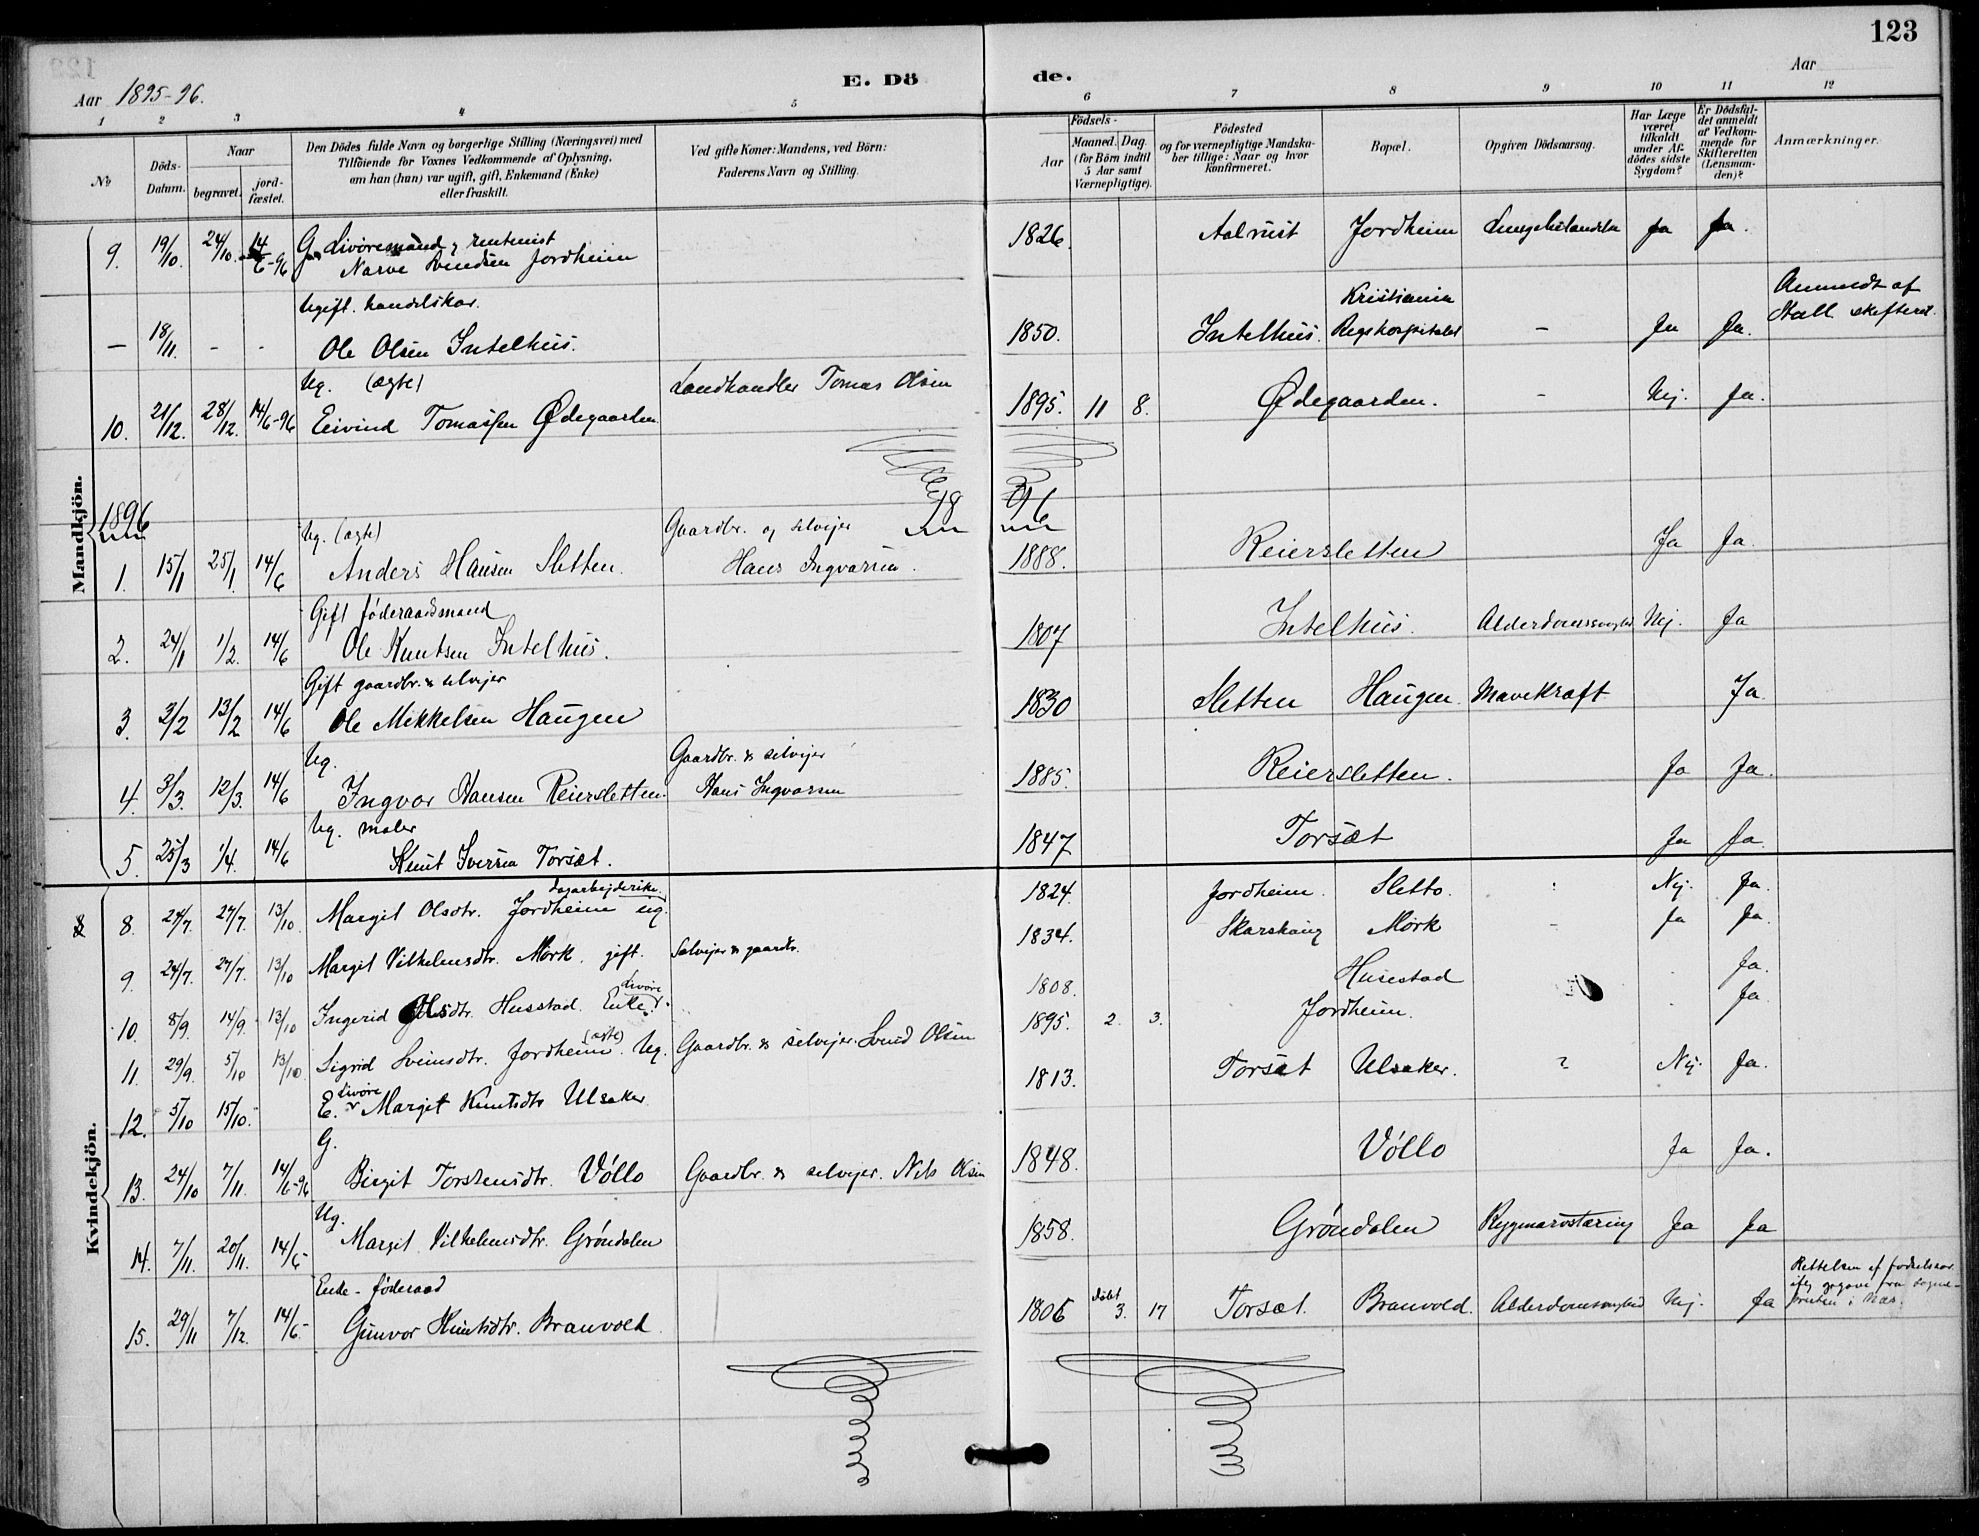 123
Aar 1895-96. E. Dö de. Aar
1 2 3 4 5 6 7 8 9 10 11 12
No
Döds-Datum.
Naar
begravet. jord-fæstet.
Den Dödes fulde Navn og borgerlige Stilling (Næringsvei) med
Tilföiende for Voxnes Vedkommende af Oplysning,
om han (hun) var ugift, gift, Enkemand (Enke)
eller fraskilt.
Ved gifte Koner: Mandens, ved Börn:
Faderens Navn og Stilling.
Födsels-
Aar Maaned. Dag.
(for Börn indtil
5 Aar samt
Værnepligtige).
Födested
og for værnepligtige Mandska-
ber tillige: Naar og hvor
konfirmeret.
Bopæl.
Opgiven Dödsaarsag.
Har Læge
været
tilkaldt
under Af-
dödes sidste
Sygdom?
Er Dödsfal-
det anmeldt
af Vedkom-
mende for
Skifteretten
(Lensman-
den)?
Anmærkninger.
Mandkjön.
G. Livöremand & rentenist
9. 19/10. 24/10. 14/6-96 Narve Svendsen Jordheim 1826. Aalrust Jordheim Ja Ja.
Ugift. handelskar. Kristiania Anmeldt af
— 18/11. - - Ole Olsen Intelhus. 1850. Intelhus. Rigshospitalet - Ja Ja. Hall. skifteret.
Ug. (ægte) Landhandler Tomas Olsen
10. 21/12. 28/12. 14/6-96 Eivind Tomassen Ødegaarden 1895. 11 8. Ødegaarden. - Nej. Ja.
1896 18 96
Ug. (ægte) Gaardbr. og selvejer
1. 15/1 25/1. 14/6 Anders Hansen Sletten. Hans Ingvarsen. 1888. Reiersletten Ja Ja.
Gift föderaadsmand
2. 24/1 1/2. 14/6 Ole Knutsen Intelhus. 1807 Intelhus. Alderdomssvaghed Nej. Ja
Gift gaardbr. & selvejer
3. 3/2 13/2 14/6 Ole Mikkelsen Haugen 1830 Sletten Haugen. Mavekræft Ja.
Ug. Gaardbr. & selvejer
4. 3/3. 12/3. 14/6 Ingvar Hansen Reiersletten. Hans Ingvarsen 1885. Reiersletten. Ja Ja.
Ug. maler
5. 25/3 1/4. 14/6 Knut Iversen Torsæt. 1847 Torsæt Ja Ja.
Kvindekjön.
8. 24/7. 27/7. 13/10. Margit Olsdtr. Jordheim ug. dagarbejderske. 1824. Jordheim. Sletto. Nej. Ja.
9. 24/7. 27/7. 13/10 Margit Vilhelmsdtr. Mörk. gift. Selvejer & gaardbr. 1834. Skarshaug Mörk - Ja Ja.
10. 8/9. 14/9. 13/10 Ingerid Olsdtr. Husstad. Enke. Livöre 1808. Husestad Ja.
11. 29/9. 5/10 13/10 Sigrid Sveinsdtr. Jordheim. (ægte) Ug. Gaardbr. & selvejer. Svend Olsen 1895. 2. 3. Jordheim. Ja
12. 5/10 15/10. E. Livöre Margit Knutsdtr Ulsaker 1813. Torsæt Ulsaker. ? Nej. Ja.
G.
13. 24/10 7/11. 14/6-96 Birgit Torstensdtr. Völlo Gaardbr. & selvejer. Nils Olsen 1848. Völlo Ja Ja.
Ug.
14. 7/11. 20/11. 14/6- Margit Vilhelmsdtr. Gröndalen 1858. Gröndalen Rygmarvstæring Ja Ja
Enke - föderaad
15. 29/11 7/12. 14/6- Gunvor Knutsdtr. Branvold 1806 Döbt 3. 17 Torsæt. Branvold. Alderdomssvaghed Nej. Ja
Rettelsen af födselsaar
iflg. opgave fra sogne-
presten i Næs.